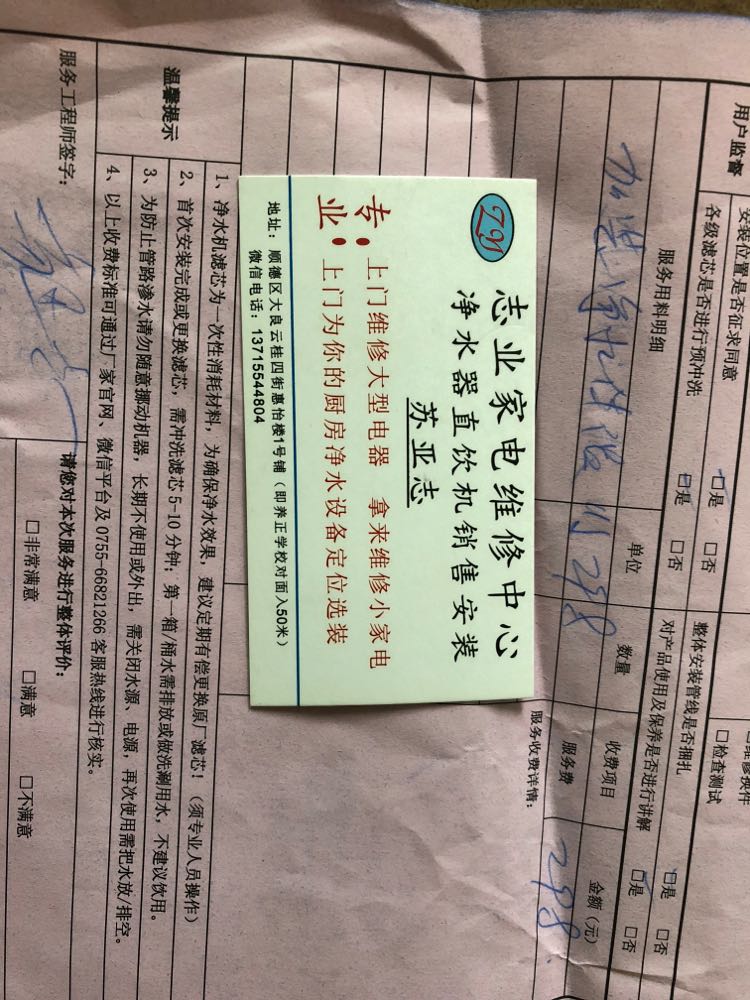 维修换件
□检查测试
用户监督
安装位置是否征求同意
□是 □否
整体安装管线是否捆扎
□是 □否
各级滤芯是否进行预冲洗
□是 □否
对产品使用及保养是否进行讲解
□是 □否
服务用料明细
单位
数量
收费项目
金额（元）
298
服务费
298
服务收费详情：
ZY
志业家电维修中心
净水器直饮机销售安装
苏亚志
专：上门维修大型电器 拿来维修小家电
业：上门为你的厨房净水设备定位选装
地址：顺德区大良云桂四街惠怡楼1号铺（即养正学校对面入50米）
微信电话：13715544804
温馨提示
1、净水机滤芯为一次性消耗材料，为确保净水效果，建议定期有偿更换原厂滤芯！（须专业人员操作）
2、首次安装完成或更换滤芯，需冲洗滤芯5-10分钟；第一箱/桶水需排放或做洗涮用水，不建议饮用。
3、为防止管路渗水请勿随意挪动机器，长期不使用或外出，需关闭水源、电源，再次使用需把水放/排空。
4、以上收费标准可通过厂家官网、微信平台及0755-66821266客服热线进行核实。
服务工程师签字：
请您对本次服务进行整体评价：
□非常满意 □满意 □不满意